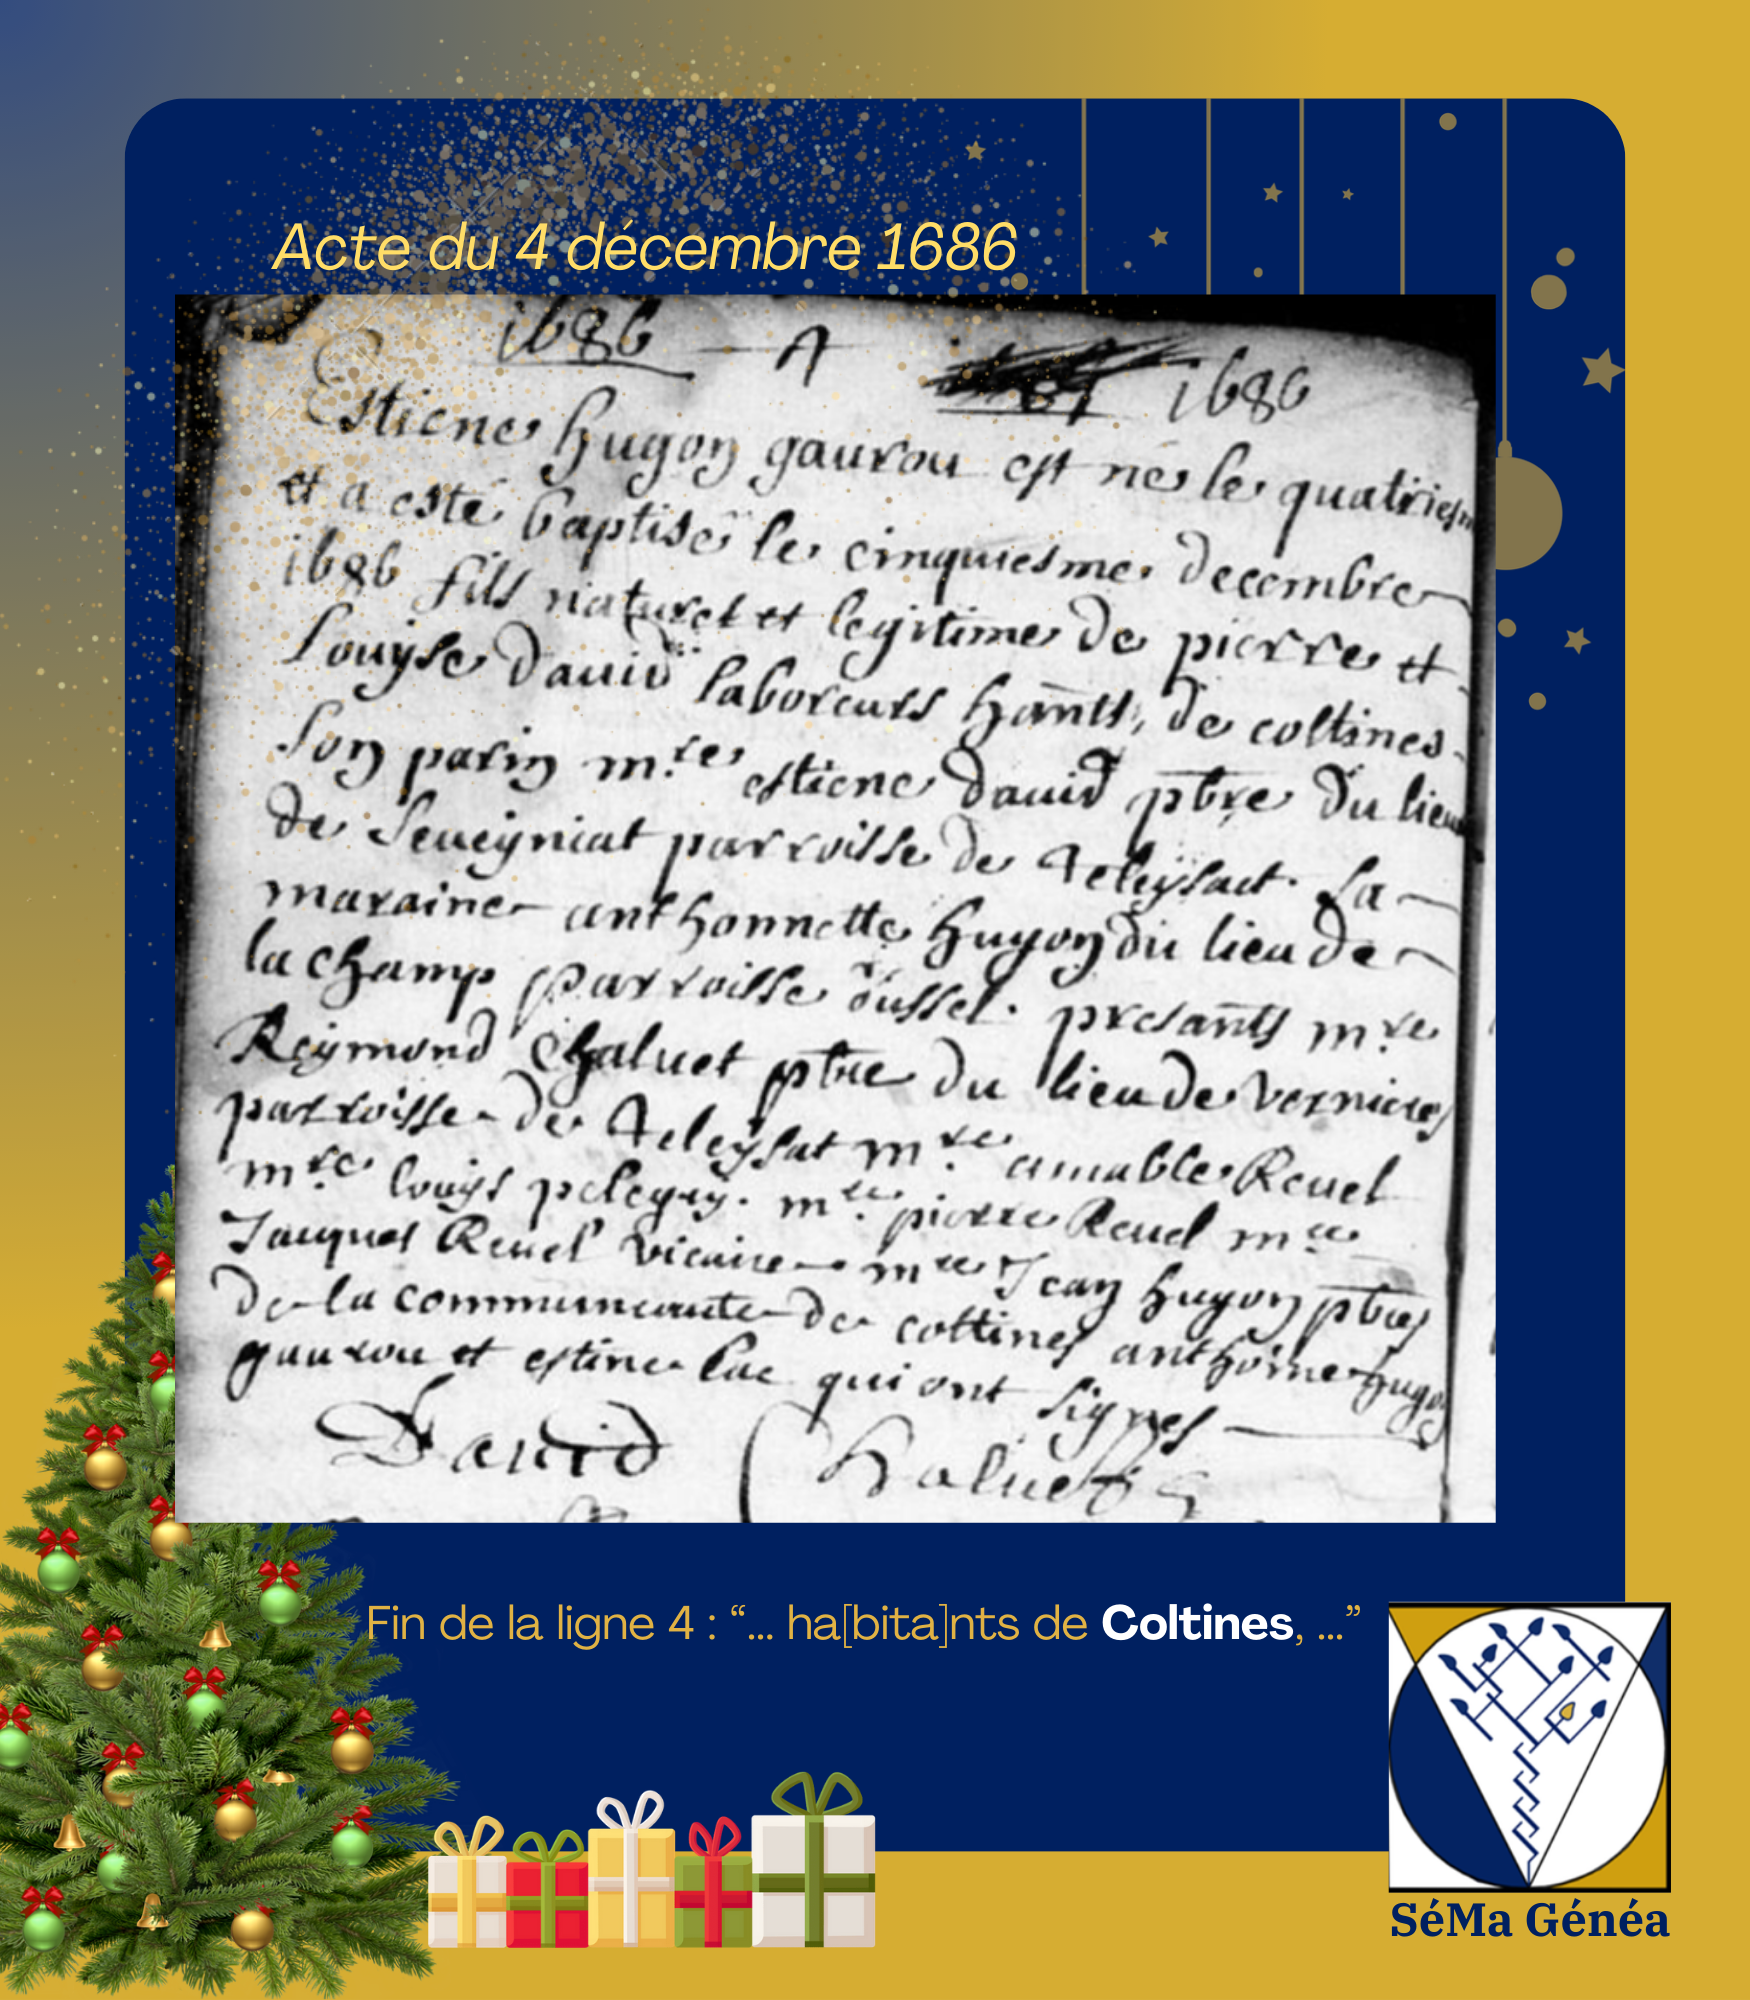 Acte du 4 décembre 1686
1686 A 1686
Estiene hugon gaurou est né le quatriesm
et a esté baptisé le cinquiesme decembre
1686 fils naturel et legitime de pierre et
Louyse david laboreurs hants, de coltines
Son parin m.re estiene david ptre du lieu
de Seveyniat parroisse de Teleysact. La
maraine anthonnette hugon du lieu de
la champ parroisse dussel. presants m.re
Reymond Chaluet ptre du lieu de vernieres
parroisse de Teleysat m.re amable Reuel
m.re louys pelegry. m.re pierre Reuel m.re
Jacques Reuel vicaire m.re Jean hugon ptres
de la communauté de coltines anthoine hugon
gaurou et estine luc qui ont signes
David Chaluet
Fin de la ligne 4 : “... ha[bita]nts de Coltines, ...”
SéMa Généa